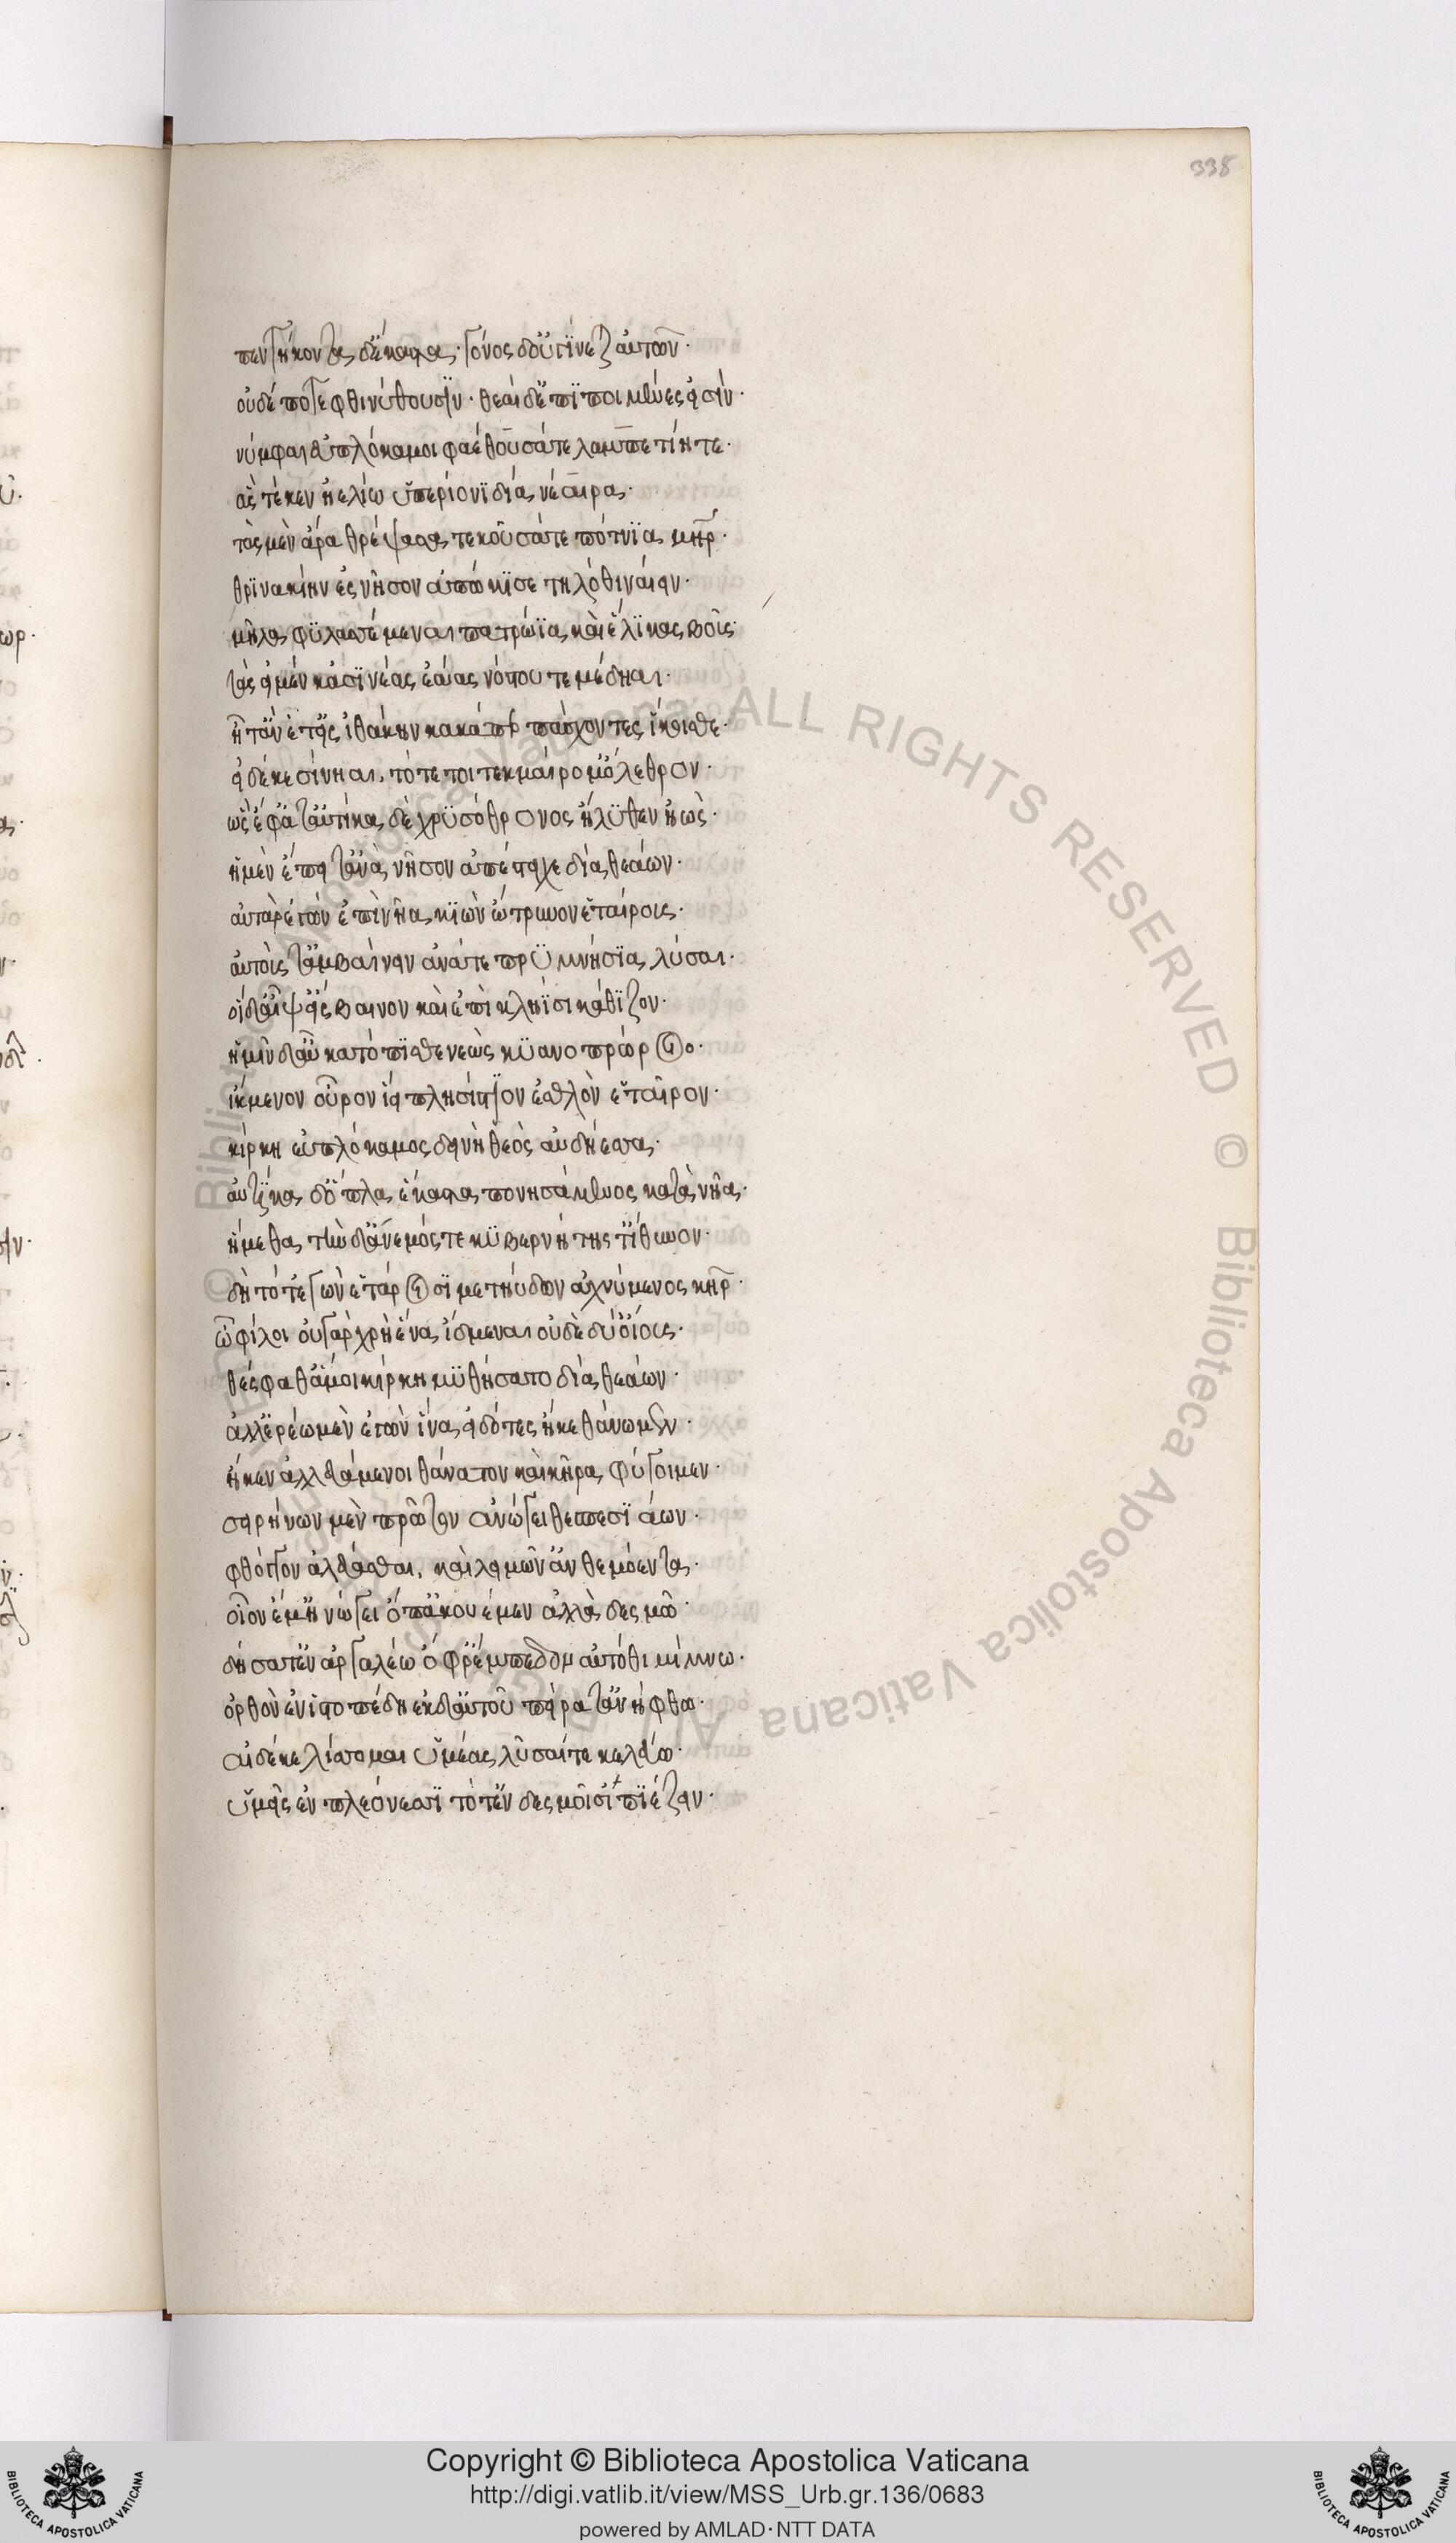 338
πεντήκοντα δ' ἕκαστα· γόνος δ' οὐ γίνετ' αὐτῶν·
οὐδέ ποτε φθινύθουσϊν· θεαὶ δ' ἐπϊποιμένες εἰσίν·
νύμφαι ἐϋπλόκαμοι φαέθουσά τε λαμπετίη τε·
ἃς τέκεν ἠελίω ὑπερίονϊ δῖα νέαιρα·
τὰς μὲν ἄρα θρέψασα τεκοῦσά τε πότνϊα μήτηρ·
θρϊνακίην ἐς νῆσον ἀπώκϊσε τηλόθι ναίειν·
μῆλα φϋλασσέμεναι πατρώϊα καὶ ἕλϊκας βοῦς·
τὰς εἰ μέν κ' ἀσϊνέας ἐάας νόστου τε μέδηαι·
ἦ τ' ἂν ἔτ' εἰς ἰθάκην κακά περ πάσχοντες ἵκοισθε·
εἰ δέ κε σίνηαι, τότε τοι τεκμαίρομ' ὄλεθρον·
ὣς ἔφατ' αὐτίκα δὲ χρϋσόθρονος ἤλϋθεν ἠώς·
ἡ μὲν ἔπειτ' ἀνὰ νῆσον ἀπέστειχε δῖα θεάων·
αὐτὰρ ἐγὼν ἐπὶ νῆα κϊὼν ὤτρυνον ἑταίρους·
αὐτούς τ' ἀμβαίνειν ἀνά τε πρϋμνήσϊα λῦσαι·
οἱ δ' αἶψ' εἴσβαινον καὶ ἐπὶ κληῖσι κάθϊζον·
ἡμῖν δ' αὖ κατόπϊσθε νεὼς κϋανοπρώροιο·
ἴκμενον οὖρον ἵει πλησίστϊον ἐσθλὸν ἑταῖρον·
κίρκη εὐπλόκαμος δεινὴ θεὸς αὐδήεσσα·
αὐτίκα δ' ὅπλα ἕκαστα πονησάμενος κατὰ νῆα·
ἥμεθα τὴν δ' ἄνεμός τε κϋβερνήτης τ' ἴθυνον·
δὴ τότ' ἐγὼν ἑτάροισϊ μετηύδων ἀχνύμενος κῆρ·
ὦ φίλοι οὐ γὰρ χρὴ ἕνα ἴδμεναι οὐδὲ δύ' οἴους·
θέσφαθ' ἅ μοι κίρκη μϋθήσατο δῖα θεάων·
ἀλλ' ἐρέω μὲν ἐγὼν ἵνα εἰδότες ἤ κε θάνωμεν·
ἤ κεν ἀλευάμενοι θάνατον καὶ κῆρα φύγοιμεν·
σειρήνων μὲν πρῶτον ἀνώγει θεσπεσϊάων·
φθόγγον ἀλεύασθαι, καὶ λειμῶν' ἀνθεμόεντα·
οἶον ἔμ' ἠνώγει ὄπ' ἀκουέμεν ἀλλὰ δεσμῶ·
δήσατ' ἐν ἀργαλέω ὄφρ' ἔμπεδον αὐτόθι μίμνω·
ὀρθὸν ἐν ἱστοπέδη ἐκ δ' αὐτοῦ πείρατ' ἀνήφθω·
αἰ δέ κε λίσσομαι ὑμέας λῦσαί τε κελεύω·
ὑμεῖς ἐν πλεόνεσσϊ τότ' ἐν δεσμοῖσι πϊέζειν·
Copyright © Biblioteca Apostolica Vaticana
http://digi.vatlib.it/view/MSS_Urb.gr.136/0683
powered by AMLAD·NTT DATA